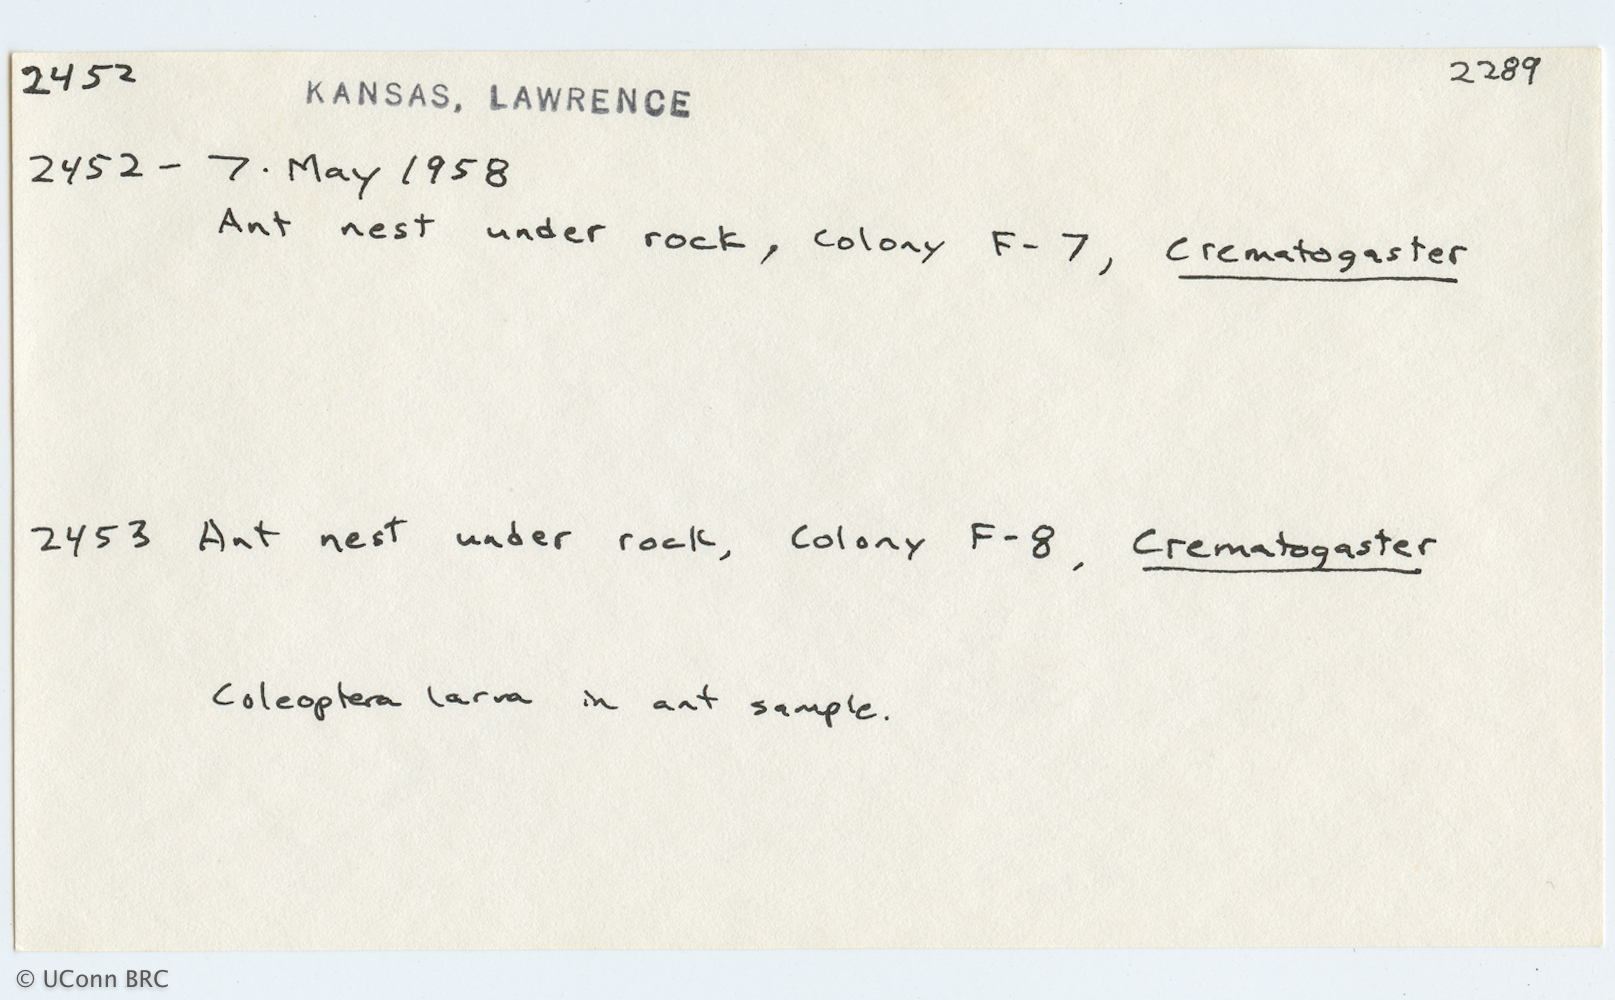 2452 KANSAS, LAWRENCE 2289
2452 - 7. May 1958
Ant nest under rock, Colony F-7, Crematogaster
2453 Ant nest under rock, Colony F-8, Crematogaster
Coleoptera larva in ant sample.
© UConn BRC